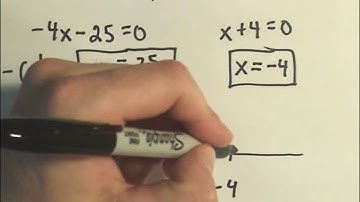 -4x-25=0
x+4=0
= 25
x=-4
Sharpie
-4